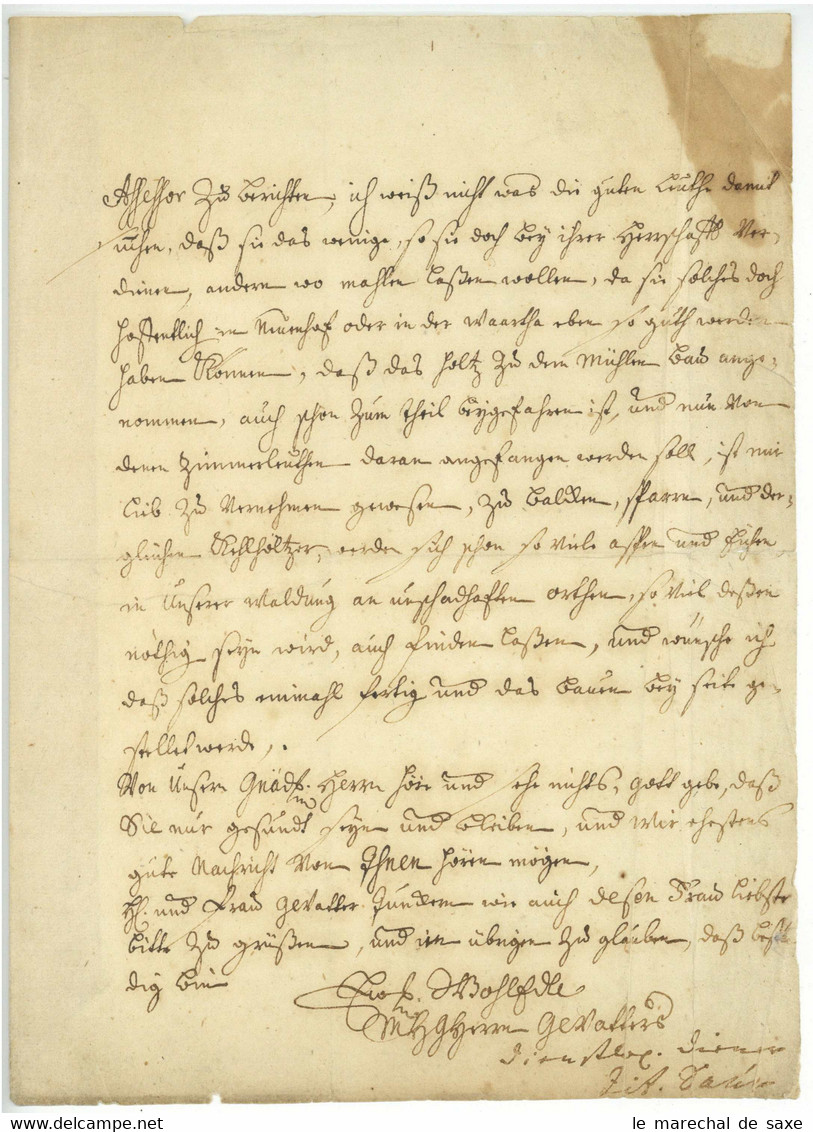 Assessor Zu berichten, ich weiß nicht was die guten Leuthe damit
suchen, daß sie das wenige, so sie doch bey ihrer Herrschafft Ver-
dienen, andern wo mahlen laßen wollen, da sie solches doch
hoffentlich in Neuenhof oder in der Waartha eben so guth werden
haben Können, daß das Holtz zu dem Mühlen Bau ange-
nommen, auch schon Zum theil beygefahren ist, und nun Von
denen Zimmerleuthen daran angefangen werden soll, ist mir
lieb zu Vernehmen gewesen, zu balcken, sparren, und der-
gleichen Kehlhöltzer, werden sich schon so viele aspen und Fichten
in Unserer Waldung an unschadhafften orthen, so viel deßen
nöthig seyn wird, auch finden laßen, und wünsche ich
daß solches einmahl fertig und das bauen bey seite ge-
stellet werde,.
Von Unsern Gnäds. Herrn höre und sehe nichts, gott gebe, daß
Sie nur gesundt seyn und bleiben, und wir ehestens
gute Nachricht Von Ihnen hören mögen,
H. und Frau Gevatter Junckern wie auch deßen Frau Liebste
bitte zu grüßen, und im übrigen zu glauben, daß bestä
dig bin
Ew. WohlEdl
MHGHerrn Gevatters
dienstl. diener
le marechal de saxe